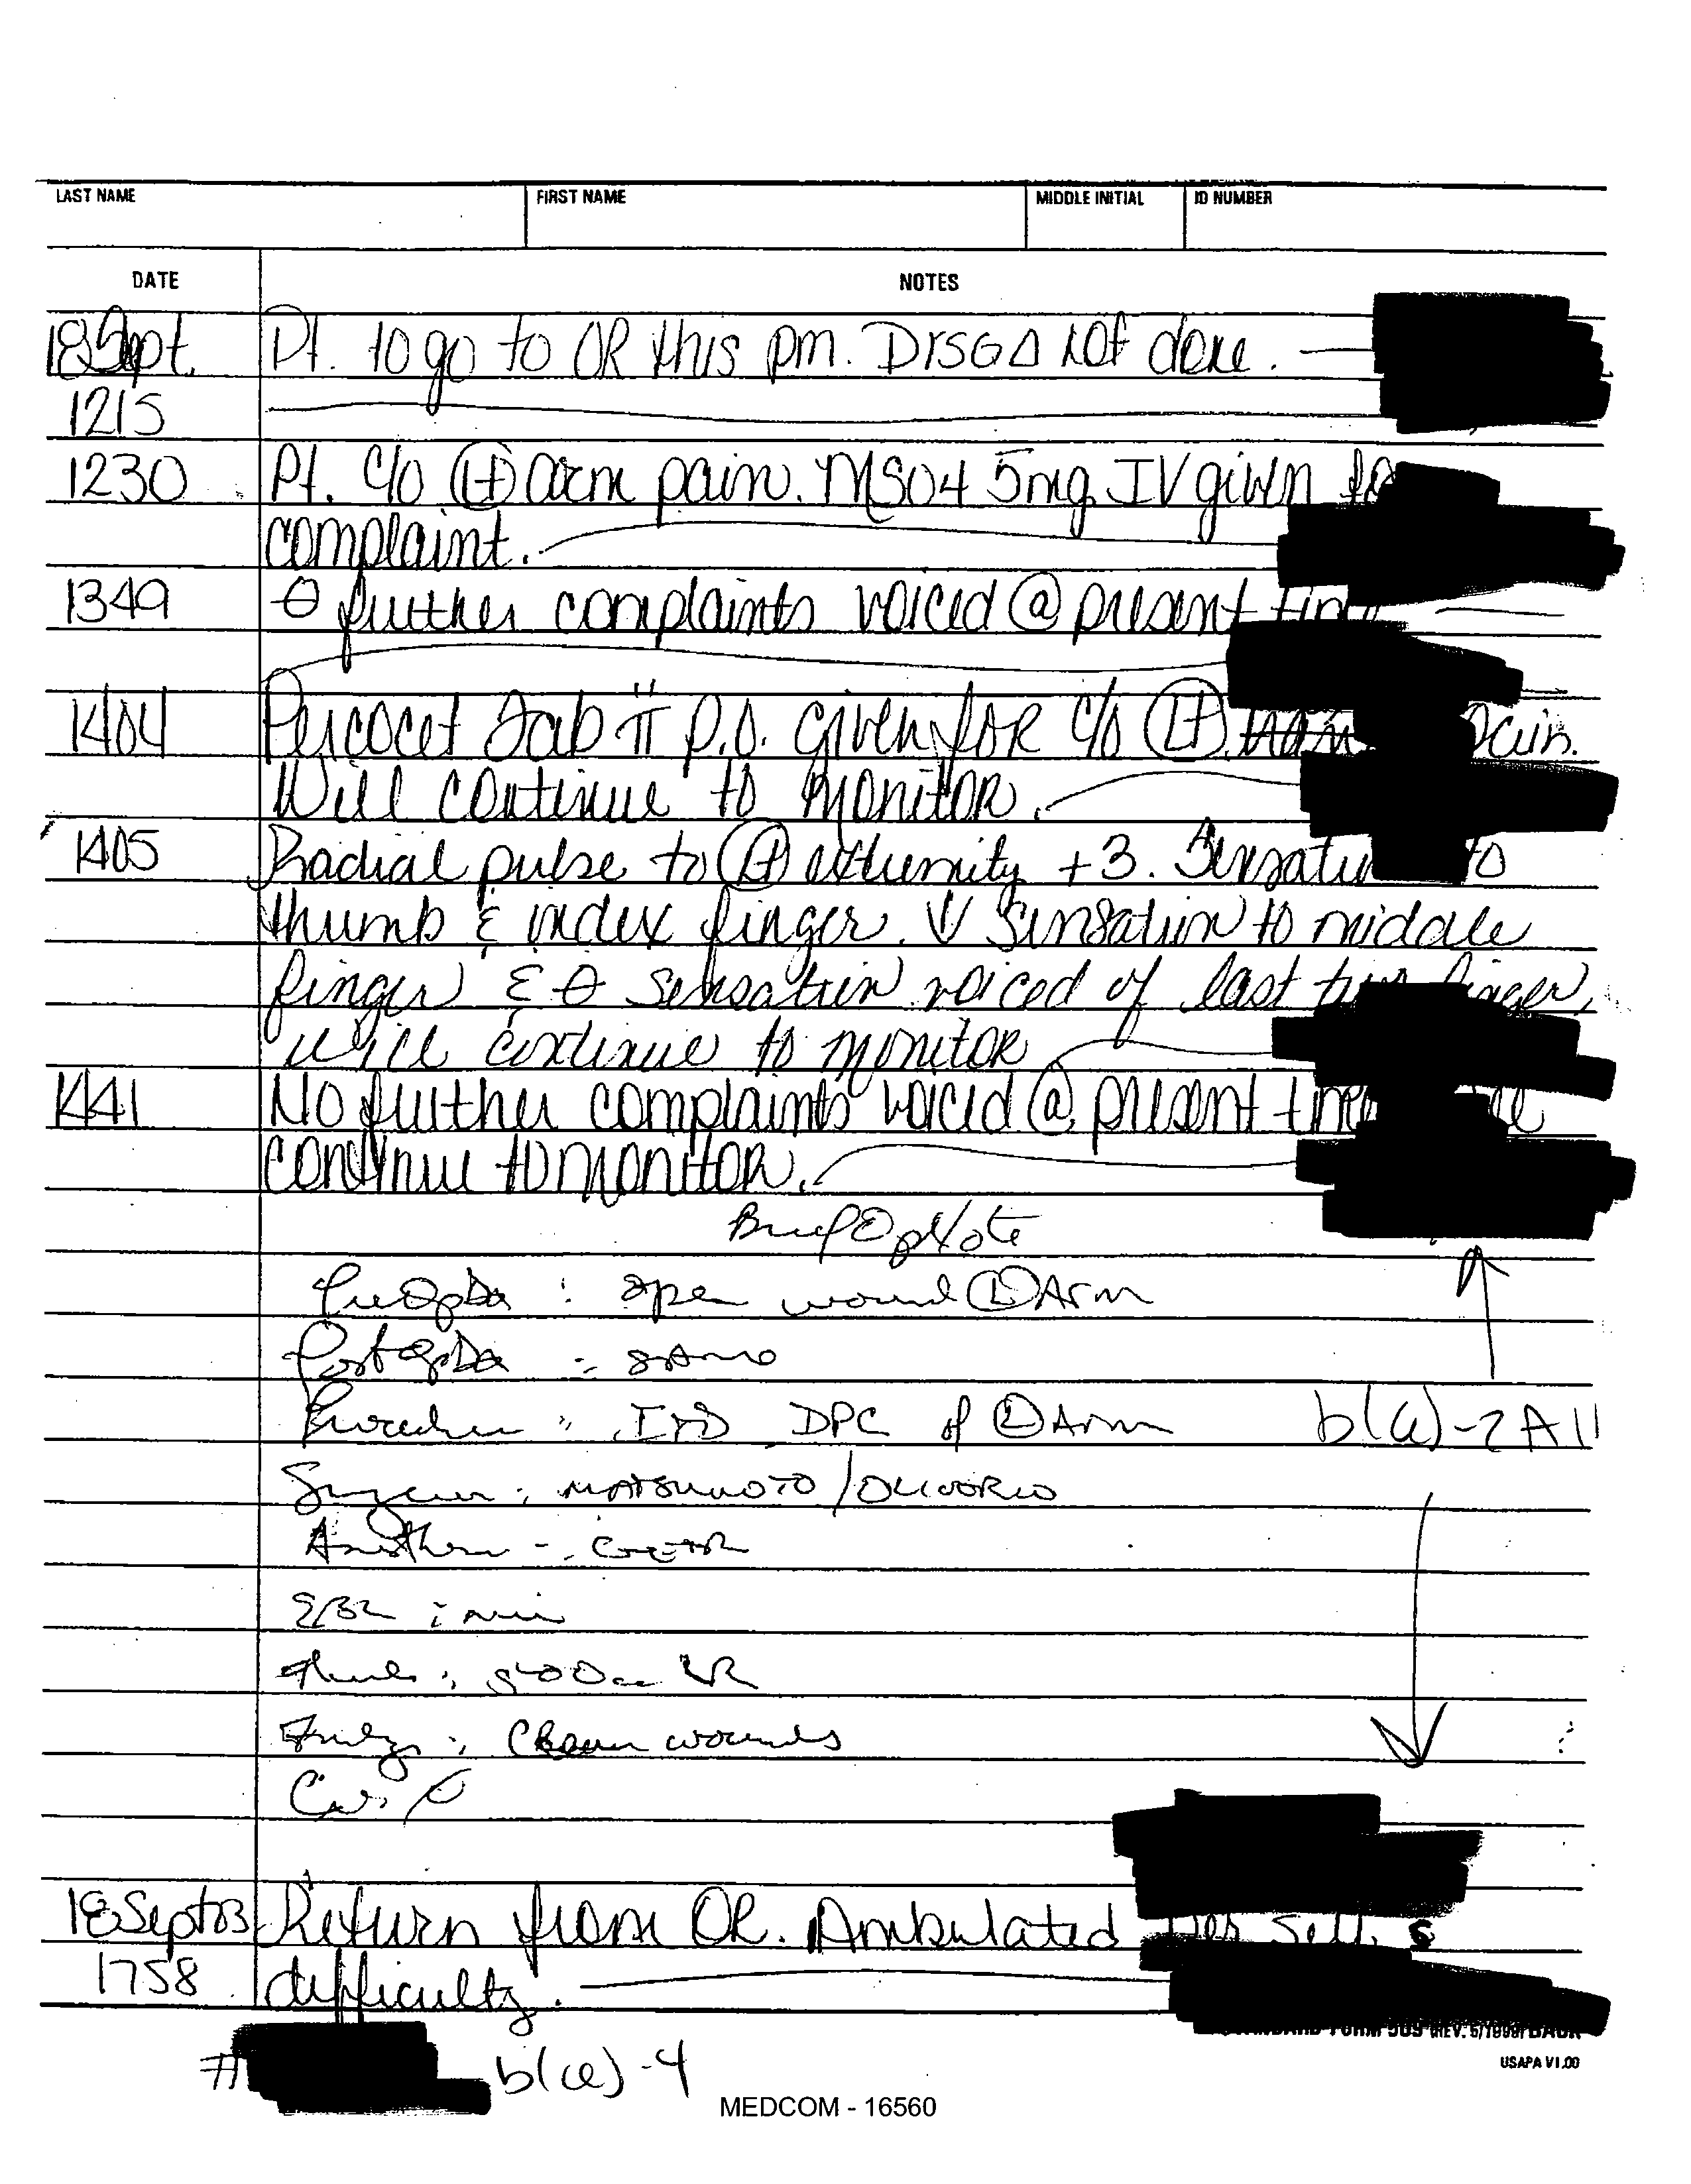 LAST NAME FIRST NAME MIDDLE INITIAL ID NUMBER
DATE NOTES
18 Sept. Pt. to go to OR this pm. DrsgΔ not done.
1215
1230 Pt. c/o (Lt) arm pain. MSO4 5mg IV given for
complaint.
1349 ⊖ further complaints voiced @ present time
1404 Percocet Tab ii P.O. given for c/o (Lt) pain.
Will continue to monitor.
1405 Radial pulse to (Lt) extremity +3. Sensation to
thumb & index finger. ↓ sensation to middle
finger & ⊖ sensation voiced of last two finger,
will continue to monitor
1441 No further complaints voiced @ present time
continue to monitor.
Brief Op Note
PreOpDx : open wound (L) Arm
PostOpDx : same
Procedure : I+D DPC of (L) Arm b(6)-2 All
Surgeon : MATSUMOTO /
: GETA
EBL : min
Fluids : 500cc LR
Findings : Clean wounds
18 Sept 03 Return from OR. Ambulated per self s
1758 difficulty.
STANDARD FORM 509 (REV. 5/1999) BACK
USAPA V1.00
# b(6)-4
MEDCOM - 16560